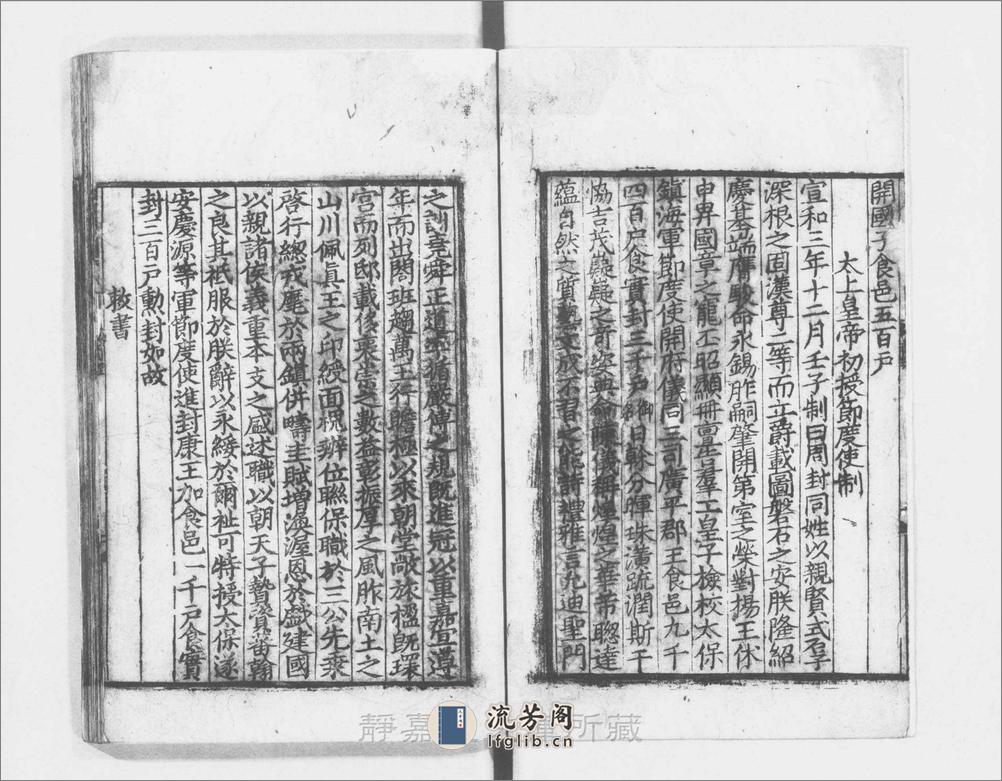 開國子食邑五百戶
太上皇帝初授節度使制
宣和三年十二月壬子制曰周封同姓以親賢式孚
深根之固漢尊二等而立爵載圖磐石之安朕隆紹
慶基端膺駿命永錫胙嗣肇開第室之榮對揚王休
申畀國章之寵丕昭顯冊誕告羣工皇子檢校太保
鎮海軍節度使開府儀同三司廣平郡王食邑九千
四百戶食實封三千戶御名日榦分暉珠潢疏潤斯干
恊吉茂嶷嶷之奇姿典命陳儀稱煌煌之華芾聦達
蘊自然之質藝文成不習之能詩禮雅言允迪聖門
之訓堯舜正道率循嚴傅之規旣進冠以重嘉宣遵
年而出閤班趨萬玉行瞻極以來朝堂敞旅楹旣環
宫而列邸載侈褒崇之數益彰振厚之風胙南土之
山川佩眞王之印綬面槐辨位聮保職於三公先乘
啓行總戎麾於兩鎮併疇圭賦增渙渥恩於戲建國
以親諸侯義重本支之盛述職以朝天子贄資蕃翰
之良其祇服於朕辭以永綏於爾祉可特授太保遂
安慶源等軍節度使進封康王加食邑一千戶食實
封三百戶勳封如故
敕書
靜嘉
所藏
流芳阁
lfglib.cn